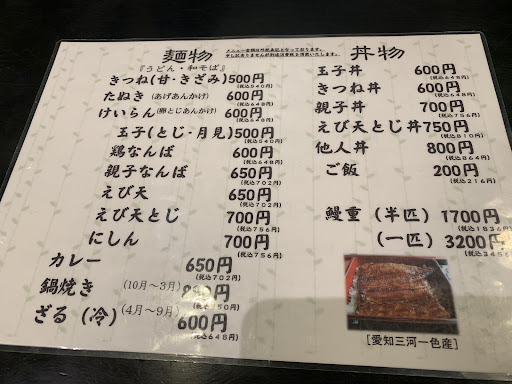 麺物
『うどん・和そば』
メニュー金額は外税表記となっております。
きつね(甘・きざみ)500円
(税込540円)
たぬき(あげあんかけ) 600円
(税込648円)
けいらん(卵とじあんかけ) 600円
(税込648円)
玉子(とじ・月見)500円
(税込540円)
鶏なんば 600円
(税込648円)
親子なんば 650円
(税込702円)
えび天 650円
(税込702円)
えび天とじ 700円
(税込756円)
にしん 700円
(税込756円)
カレー 650円
(税込702円)
鍋焼き (10月～3月)
ざる(冷) (4月～9月) 600円
(税込648円)
丼物
玉子丼 600円
(税込648円)
きつね丼 600円
(税込648円)
親子丼 700円
(税込756円)
えび天とじ丼 750円
(税込810円)
他人丼 800円
(税込864円)
ご飯 200円
(税込216円)
鰻重(半匹) 1700円
(税込1836円)
(一匹) 3200円
(税込3456
[愛知三河一色産]